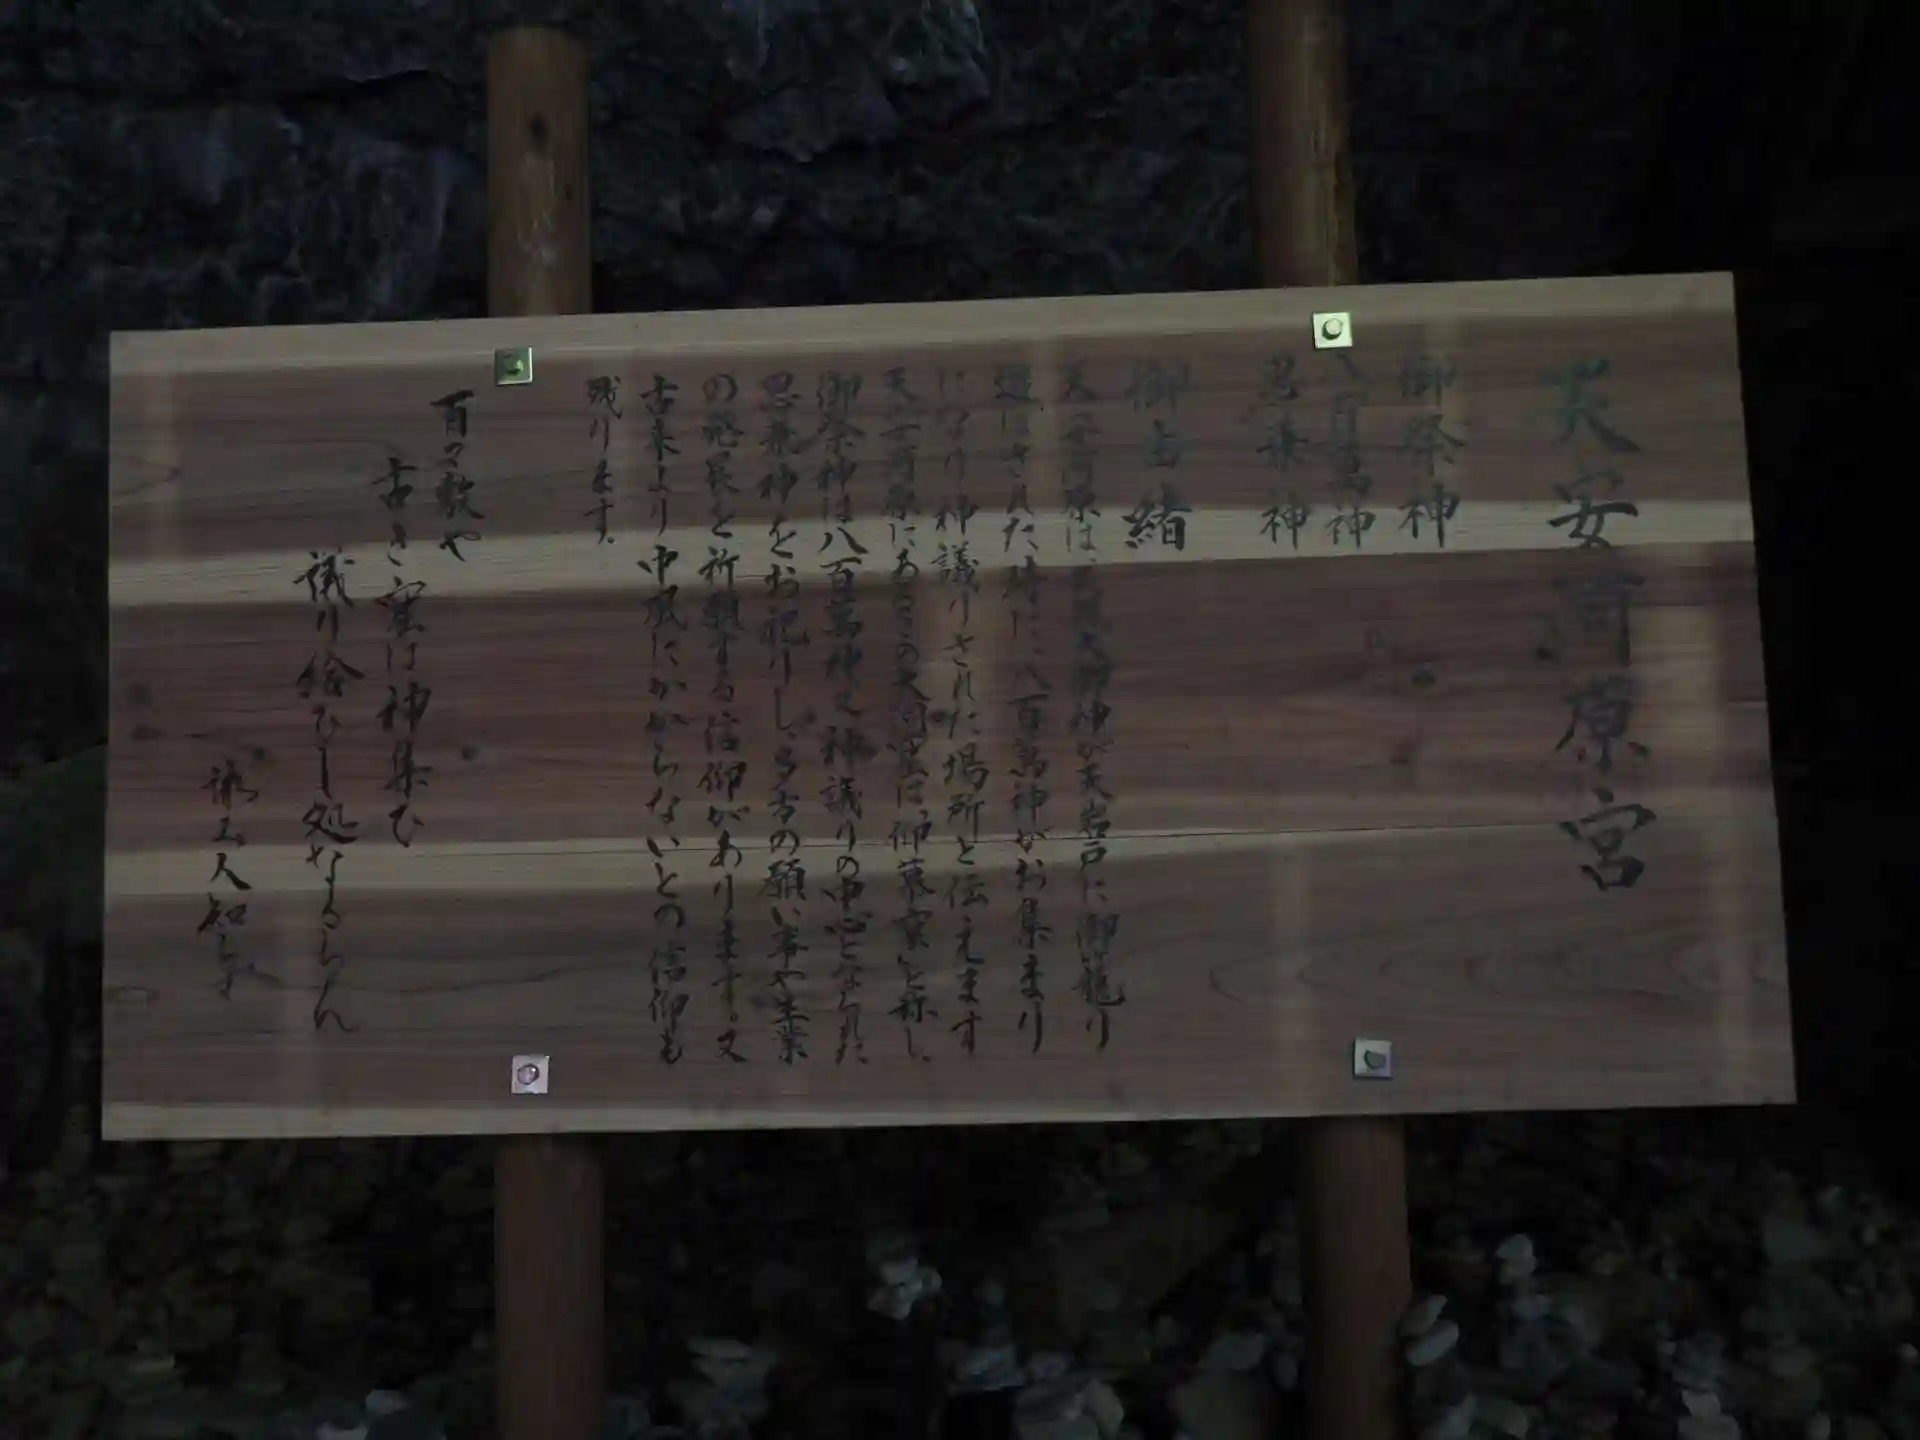 天安河原宮
御祭神
八百萬神
思兼神
御由緒
天安河原は、天照大御神が天岩戸に御籠り
遊ばされた時に、八百萬神がお集まり
になり神議りされた場所と伝えます
天安河原にあるこの大洞窟は、「仰慕窟」と称し、
御祭神は八百萬神又神議りの中心となられた
思兼神をお祀りし、多方の願い事や生業
の発展を祈願する信仰があります。又
古来より中風にかからないとの信仰も
残ります。
百の数や
古き窟は神集ひ
議り給ひし処なるらん
詠み人知らず